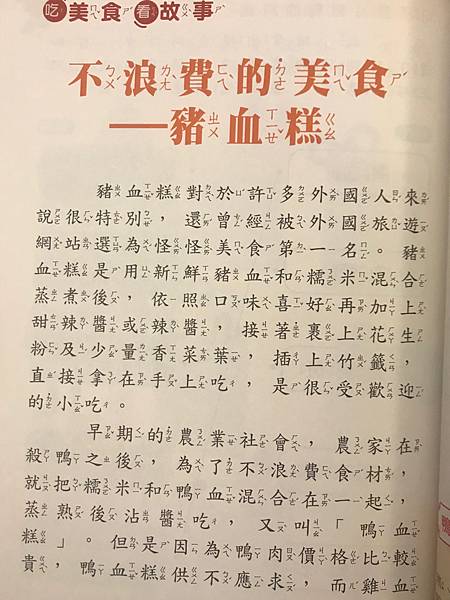 吃美食看故事
不浪費的美食
──豬血糕
豬血糕對於許多外國人來
說很特別，還曾經被外國旅遊
網站選為怪怪美食第一名。豬
血糕是用新鮮豬血和糯米混合
蒸煮後，依照口味喜好再加上
甜辣醬或辣醬，接著裹上花生
粉及少量香菜葉，插上竹籤，
直接拿在手上吃，是很受歡迎
的小吃。
早期的農業社會，農家在
殺鴨之後，為了不浪費食材，
就把糯米和鴨血混合在一起，
蒸熟後沾醬吃，又叫「鴨血
糕」。但是因為鴨肉價格比較
貴，鴨血糕供不應求，而雞血